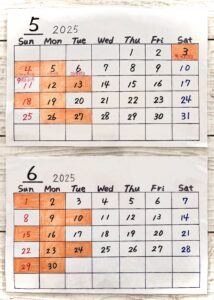 5 2025
Sun Mon Tue Wed Thu Fri Sat
1 2 3
4 5 6 7 8 9 10
11 12 13 14 15 16 17
18 19 20 21 22 23 24
25 26 27 28 29 30 31
6 2025
Sun Mon Tue Wed Thu Fri Sat
1 2 3 4 5 6 7
8 9 10 11 12 13 14
15 16 17 18 19 20 21
22 23 24 25 26 27 28
29 30